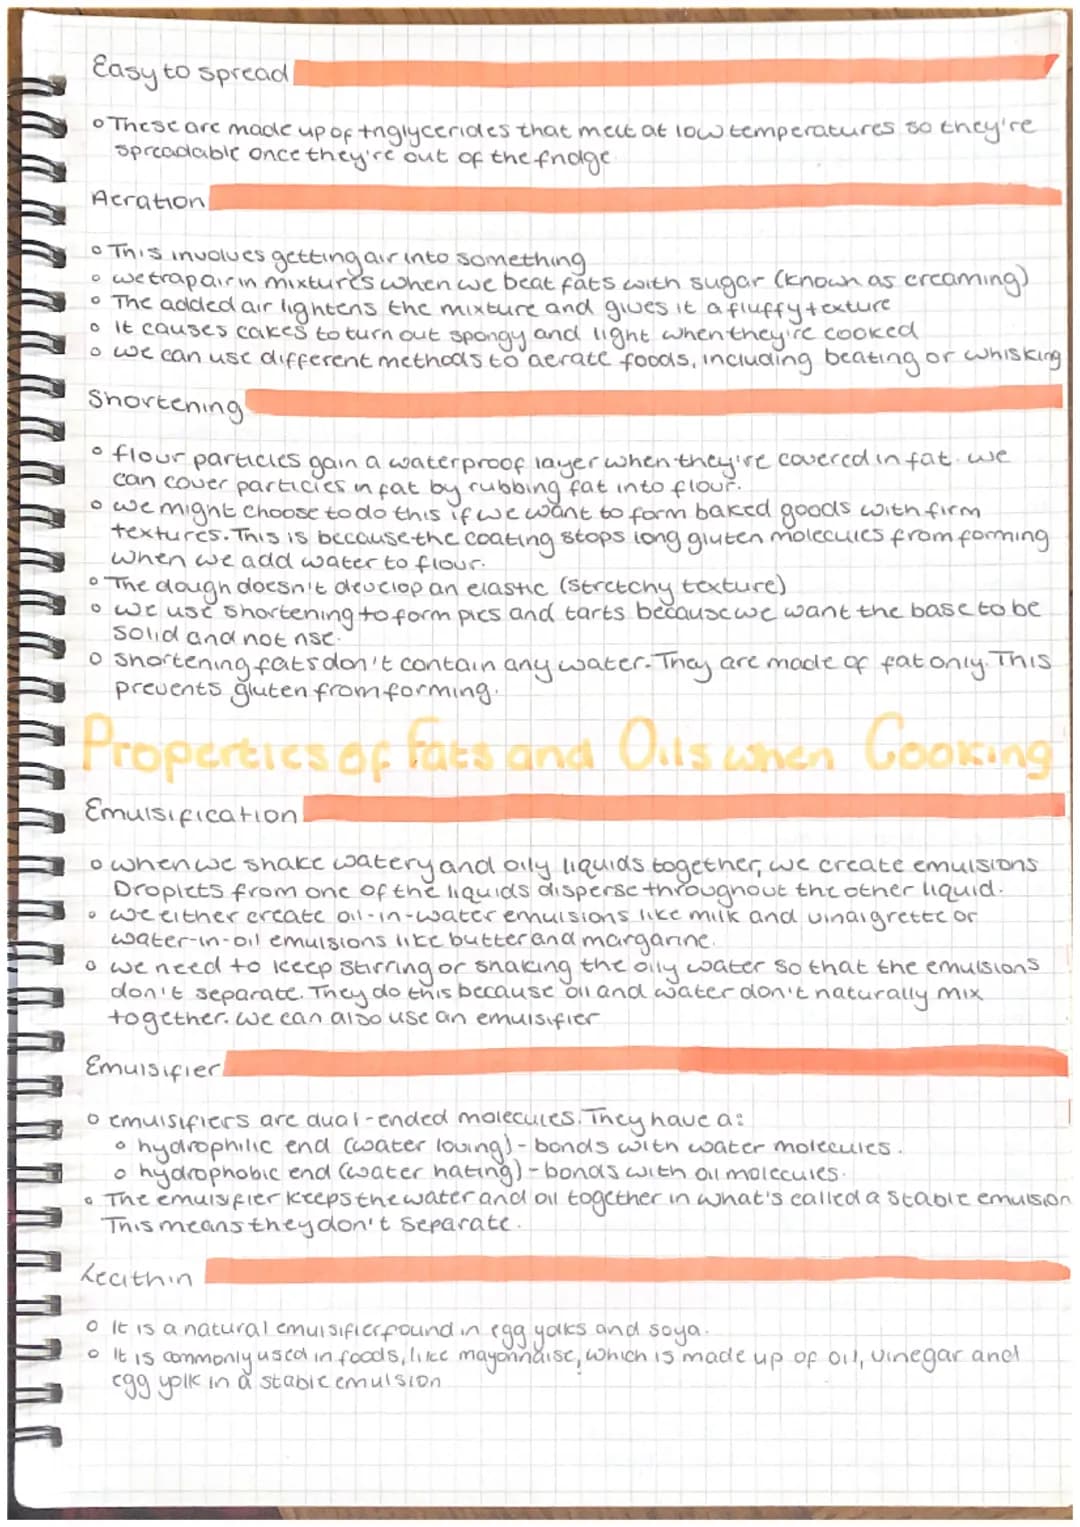 Easy to spread
• These are made up of triglycerides that melt at low temperatures so they're
spreadable once they're out of the fridge.
Aeration
• This involves getting air into something
• we trap air in mixtures when we beat fats with sugar (known as creaming)
• The added air lightens the mixture and gives it a fluffy texture
• It causes cakes to turn out spongy and light when they're cooked
• we can use different methods to aerate foods, including beating or whisking
Shortening
• flour particles gain a waterproof layer when they're covered in fat. we
can cover particles in fat by rubbing fat into flour.
• we might choose to do this if we want to form baked goods with firm
textures. This is because the coating stops long gluten molecules from forming
when we add water to flour.
• The dough doesn't develop an elastic (stretchy texture)
• we use shortening to form pies and tarts because we want the base to be
solid and not rise.
• Shortening fats don't contain any water. They are made of fat only. This
prevents gluten from forming.
Properties of Fats and Oils when Cooking
Emulsification
• when we shake watery and oily liquids together, we create emulsions
Droplets from one of the liquids disperse throughout the other liquid.
• we either create oil-in-water emulsions like milk and vinaigrette or
water-in-oil emulsions like butter and margarine.
• we need to keep stirring or shaking the oily water so that the emulsions
don't separate. They do this because oil and water don't naturally mix
together. we can also use an emulsifier
Emulsifier
• emulsifiers are dual-ended molecules. They have a:
• hydrophilic end (water loving) - bonds with water molecules.
• hydrophobic end (water hating) - bonds with oil molecules.
• The emulsifier keeps the water and oil together in what's called a stable emulsion
This means they don't separate.
Lecithin
• It is a natural emulsifier found in egg yolks and soya.
• It is commonly used in foods, like mayonnaise, which is made up of oil, vinegar and
egg yolk in a stable emulsion